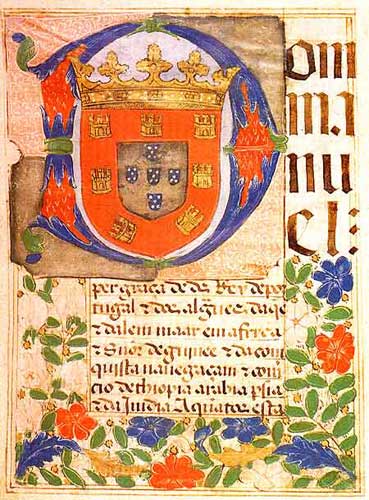 Dom
ma
nu
el:
per graça de ds Rey de por
tugal & dos algües daqe
& dalem maar em africa
& Snor de guinee & da con
quista nauegacam & com
cio dethiopia arabia psia
& da India A quatos esta